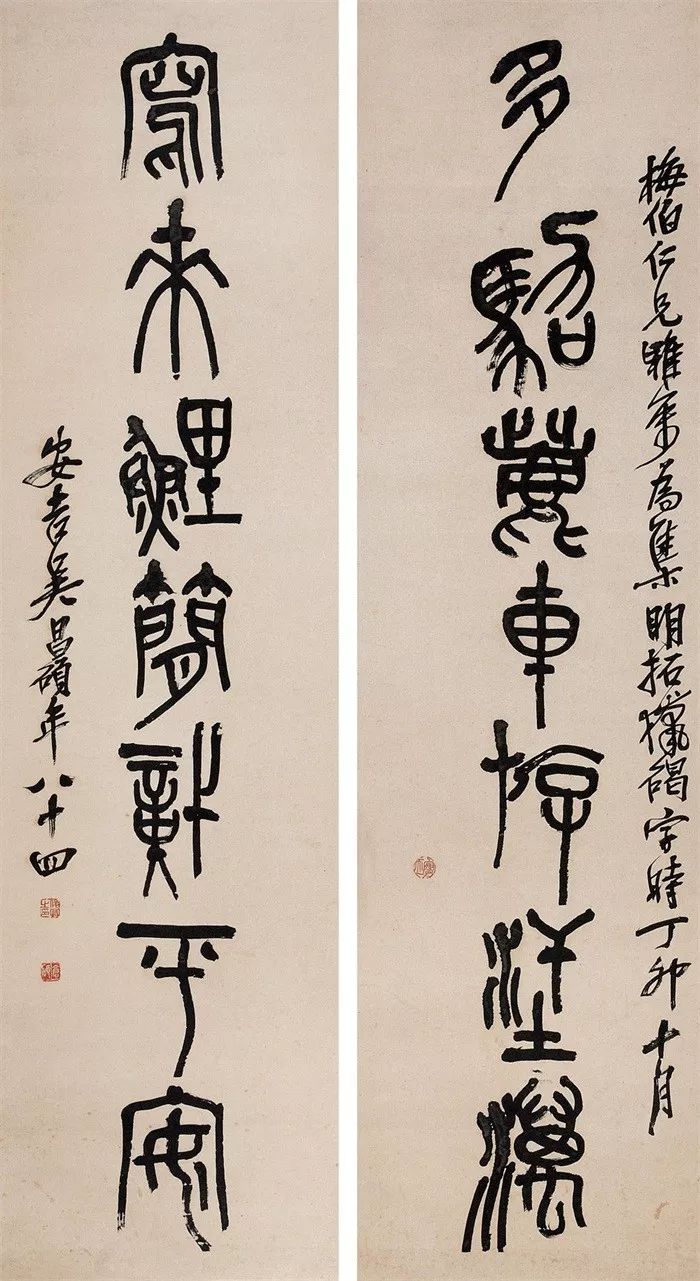 梅伯仁兄雅屬為集明拓獵碣字時丁卯十月
多駕車斿澫
寫來鯉簡平安
安吉吳昌碩年八十四